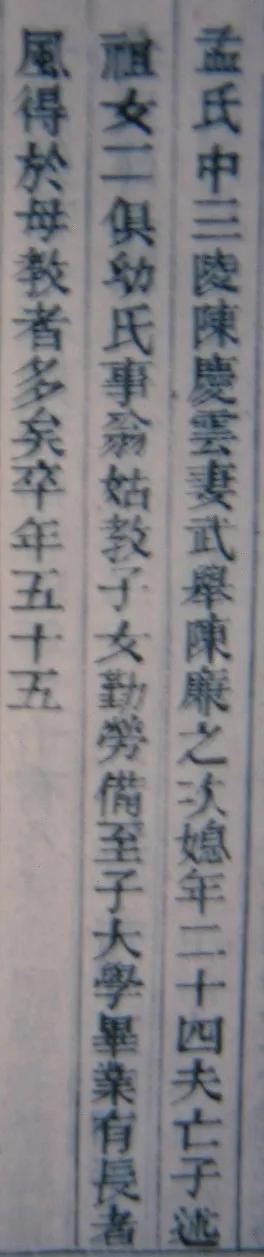 孟氏中三陵陳慶雲妻武舉陳廉之次媳年二十四夫亡子述
祖女二俱幼氏事翁姑教子女勤勞備至子大學畢業有長者
風得於母教者多矣卒年五十五